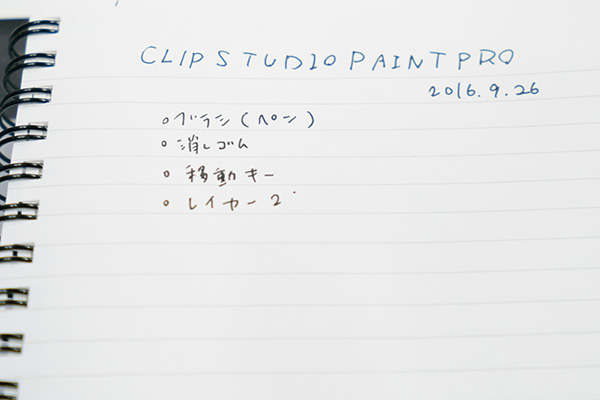 CLIP STUDIO PAINT PRO
2016.9.26
○ブラシ(ペン)
○消しゴム
○移動キー
○レイヤー2